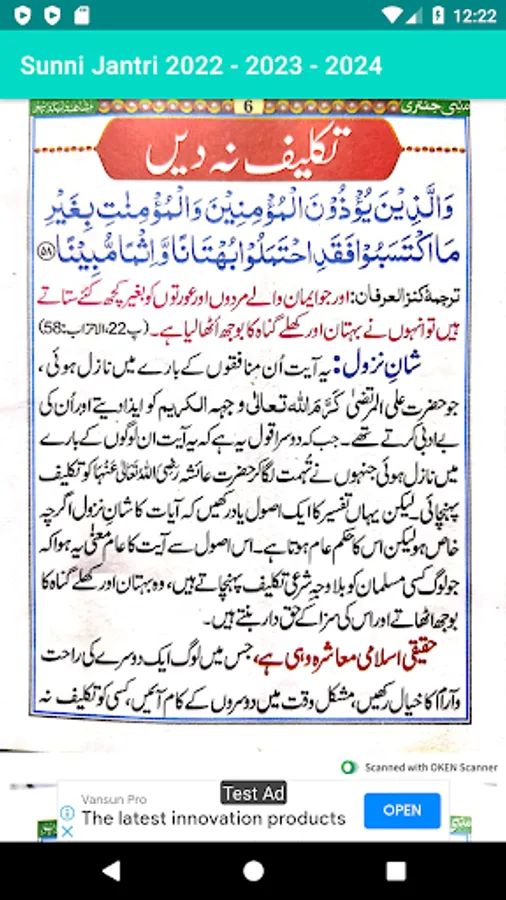 12:22
Sunni Jantri 2022 - 2023 - 2024
سنی جنتری
6
تکلیف نہ دیں
وَالَّذِیْنَ یُؤْذُوْنَ الْمُؤْمِنِیْنَ وَالْمُؤْمِنٰتِ بِغَیْرِ
مَا اكْتَسَبُوْا فَقَدِ احْتَمَلُوْا بُهْتَانًا وَّ اِثْمًا مُّبِیْنًا ﴿۵۸﴾
ترجمۂ کنزالعرفان: اور جو ایمان والے مردوں اور عورتوں کو بغیر کچھ کئے ستاتے
ہیں تو انہوں نے بہتان اور کھلے گناہ کا بوجھ اُٹھا لیا ہے۔ (پ22، الاحزاب:58)
شانِ نزول: یہ آیت اُن منافقوں کے بارے میں نازل ہوئی ،
جو حضرت علی المرتضیٰ کَرَّمَ اللہ تعالیٰ وجہہ الکریم کو ایذا دیتے اور اُن کی
بے ادبی کرتے تھے۔ جب کہ دوسرا قول یہ ہے کہ یہ آیت ان لوگوں کے بارے
میں نازل ہوئی جنہوں نے تُہمت لگا کر حضرت عائشہ رَضِیَ اللہُ تَعَالٰی عَنْہَا کو تکلیف
پہنچائی۔ لیکن یہاں تفسیر کا ایک اصول یاد رکھیں کہ آیات کا شانِ نزول اگرچہ
خاص ہو لیکن اس کا حکم عام ہوتا ہے۔ اس اصول سے آیت کا عام معنٰی یہ ہوا کہ
جو لوگ کسی مسلمان کو بلاوجہِ شرعی تکلیف پہنچاتے ہیں، وہ بہتان اور کھلے گناہ کا
بوجھ اٹھاتے اور اس کی سزا کے حق دار بنتے ہیں۔
حقیقی اسلامی معاشرہ وہی ہے، جس میں لوگ ایک دوسرے کی راحت
و آرام کا خیال رکھیں، مشکل وقت میں دوسروں کے کام آئیں، کسی کو تکلیف نہ
Scanned with OKEN Scanner
Test Ad
Vansun Pro
The latest innovation products
OPEN